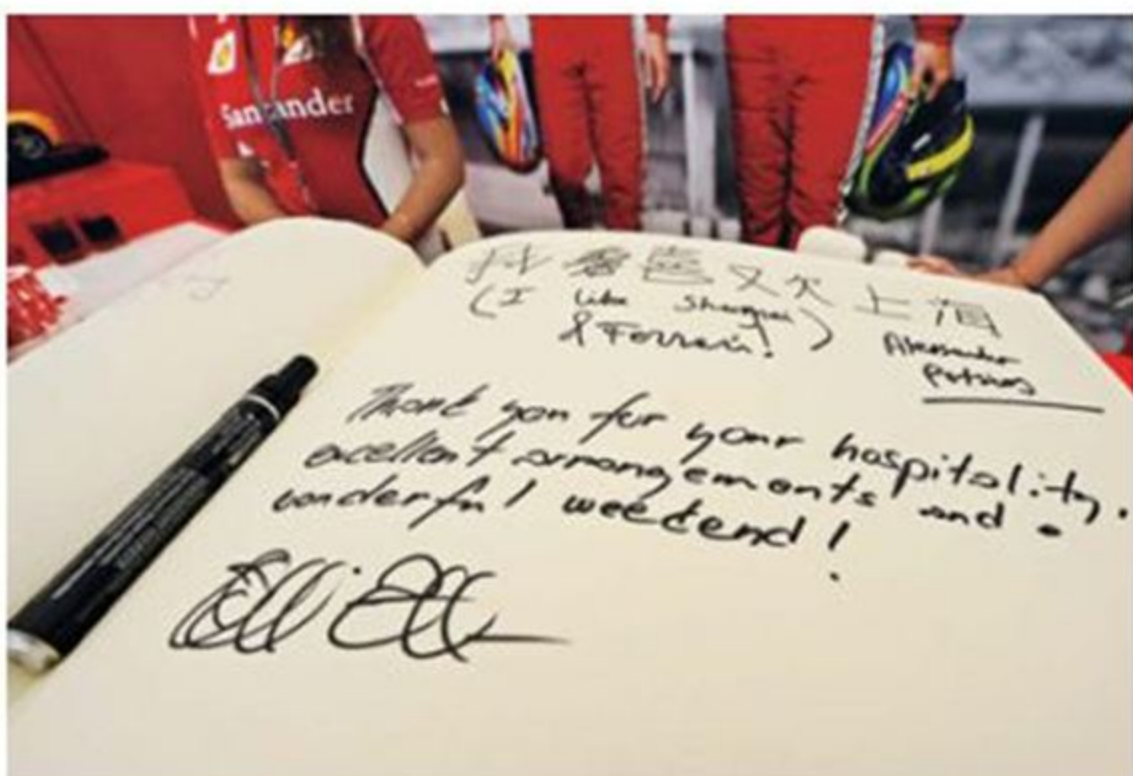 Santander
我喜欢上海
(I like Shangai)
& Ferrari!
Alessandro
Thank you for your hospitality.
excellent arrangements and a
wonderful weekend!